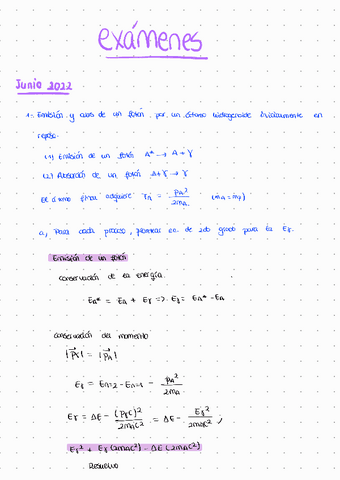 exámenes
Junio 2022
1.- Emisión y abs de un fotón por un átomo hidrogenoide inicialmente en
reposo.
(1) Emisión de un fotón A* → A + γ
(2) Absorción de un fotón A + γ → γ
El átomo final adquiere T_A = p_A² / 2m_A (m_A = m_p)
a, Para cada proceso, plantear ec. de 2do grado para la Eγ.
Emisión de un fotón
conservación de la energía.
E_A* = E_A + Eγ => Eγ = E_A* - E_A
conservación del momento
|p⃗γ| = |p⃗_A|
Eγ = E_n=2 - E_n=1 - p_A² / 2m_A
Eγ = ΔE - (pγc)² / 2m_Ac² = ΔE - Eγ² / 2m_Ac² ;
Eγ² + Eγ (2m_Ac²) - ΔE (2m_Ac²)
Resuelvo